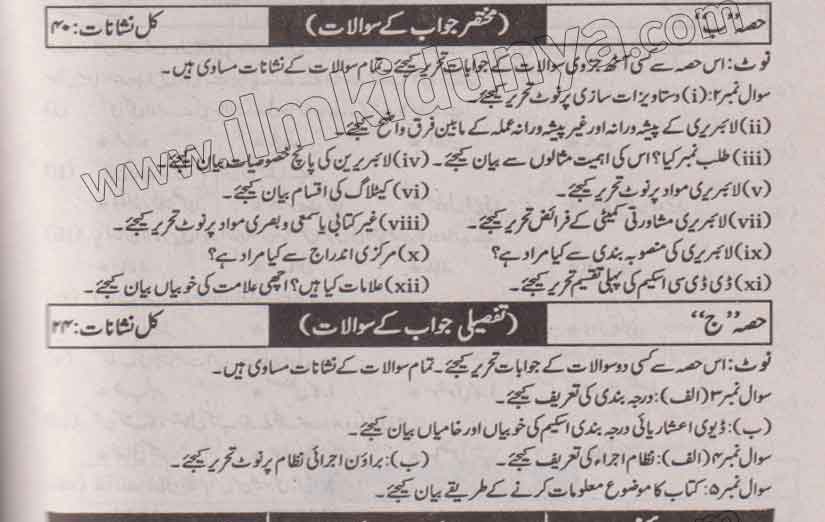 حصہ ’’ب‘‘ (مختصر جواب کے سوالات) کل نشانات: ۴۰
نوٹ: اس حصہ سے کسی آٹھ جزوی سوالات کے جوابات تحریر کیجئے۔ تمام سوالات کے نشانات مساوی ہیں۔
سوال نمبر۲: (i) دستاویزات سازی پر نوٹ تحریر کیجئے۔
(ii) لائبریری کے پیشہ ورانہ اور غیر پیشہ ورانہ عملہ کے مابین فرق واضح کیجئے۔
(iii) طلب نمبر کیا؟ اس کی اہمیت مثالوں سے بیان کیجئے۔ (iv) لائبریرین کی پانچ خصوصیات بیان کیجئے۔
(v) لائبریری مواد پر نوٹ تحریر کیجئے۔ (vi) کیٹلاگ کی اقسام بیان کیجئے۔
(vii) لائبریری مشاورتی کمیٹی کے فرائض تحریر کیجئے۔ (viii) غیر کتابی یا سمعی و بصری مواد پر نوٹ تحریر کیجئے۔
(ix) لائبریری کی منصوبہ بندی سے کیا مراد ہے؟ (x) مرکزی اندراج سے کیا مراد ہے؟
(xi) ڈی ڈی سی اسکیم کی پہلی تقسیم تحریر کیجئے۔ (xii) علامات کیا ہیں؟ اچھی علامت کی خوبیاں بیان کیجئے۔
حصہ ’’ج‘‘ (تفصیلی جواب کے سوالات) کل نشانات: ۲۴
نوٹ: اس حصہ سے کسی دو سوالات کے جوابات تحریر کیجئے۔ تمام سوالات کے نشانات مساوی ہیں۔
سوال نمبر۳ (الف): درجہ بندی کی تعریف کیجئے۔
(ب): ڈیوی اعشاریائی درجہ بندی اسکیم کی خوبیاں اور خامیاں بیان کیجئے۔
سوال نمبر۴ (الف): نظام اجراء کی تعریف کیجئے۔ (ب): براؤن اجرائی نظام پر نوٹ تحریر کیجئے۔
سوال نمبر۵: کتاب کا موضوع معلومات کرنے کے طریقے بیان کیجئے۔
www.ilmkidunya.com